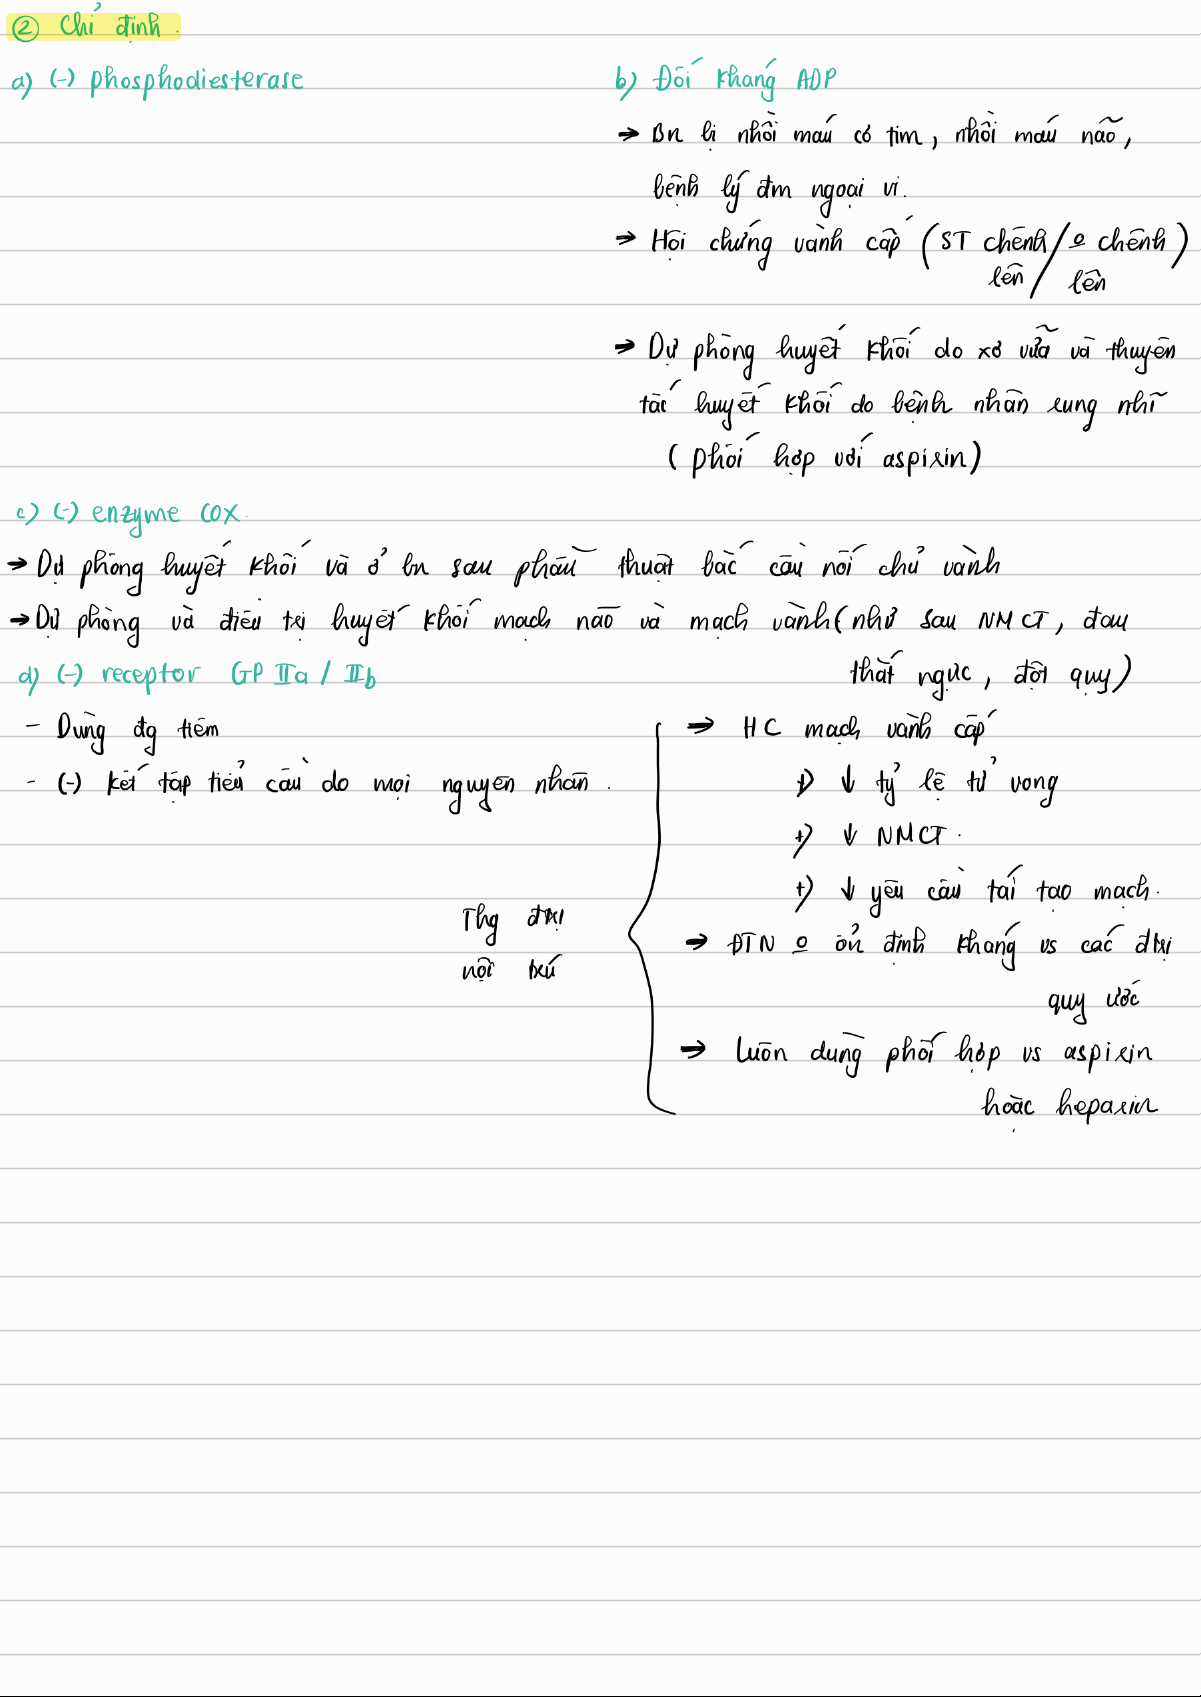 ② Chỉ định.
a) (-) phosphodiesterase
b) Đối kháng ADP
→ Bn bị nhồi máu cơ tim, nhồi máu não,
bệnh lý đm ngoại vi.
→ Hội chứng vành cấp (ST chênh lên / o chênh lên)
→ Dự phòng huyết khối do xơ vữa và thuyên
tắc huyết khối do bệnh nhân rung nhĩ
(phối hợp với aspirin)
c) (-) enzyme COX
→ Dự phòng huyết khối và ở bn sau phẫu thuật bắc cầu nối chủ vành
→ Dự phòng và điều trị huyết khối mạch não và mạch vành (như sau NMCT, đau
thắt ngực, đột quỵ)
d) (-) receptor GP IIa / IIb
- Dùng đg tiêm
- (-) kết tập tiểu cầu do mọi nguyên nhân.
Thg đtrị
nội trú
→ HC mạch vành cấp
+) ↓ tỷ lệ tử vong
+) ↓ NMCT.
+) ↓ yêu cầu tái tạo mạch.
→ ĐTN o ổn định kháng vs các đtrị
quy ước
→ Luôn dùng phối hợp vs aspirin
hoặc heparin